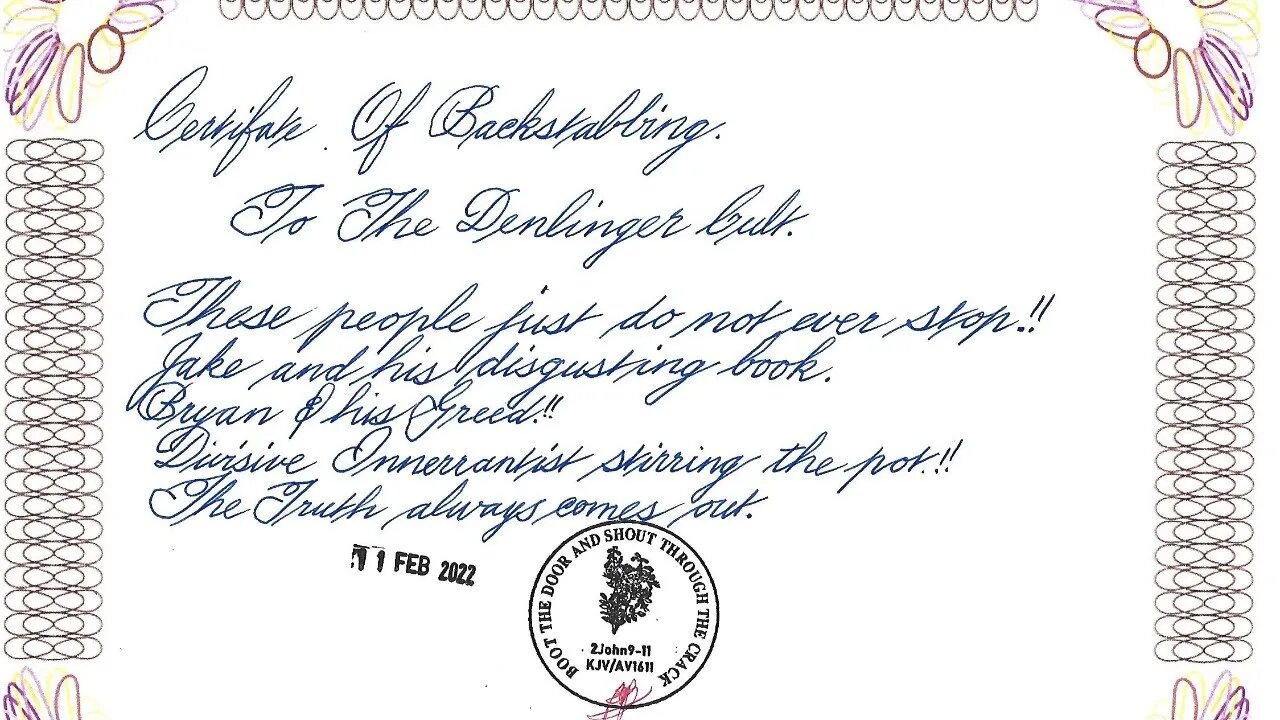 Certifate. Of Backstabbing.
To The Denlinger Cult.
These people just do not ever stop.!!
Jake and his disgusting book.
Bryan & his Greed!!
Divisive Innerrantist stirring the pot.!!
The Truth always comes out.
11 FEB 2022
BOOT THE DOOR AND SHOUT THROUGH THE CRACK
2John9-11
KJV/AV1611